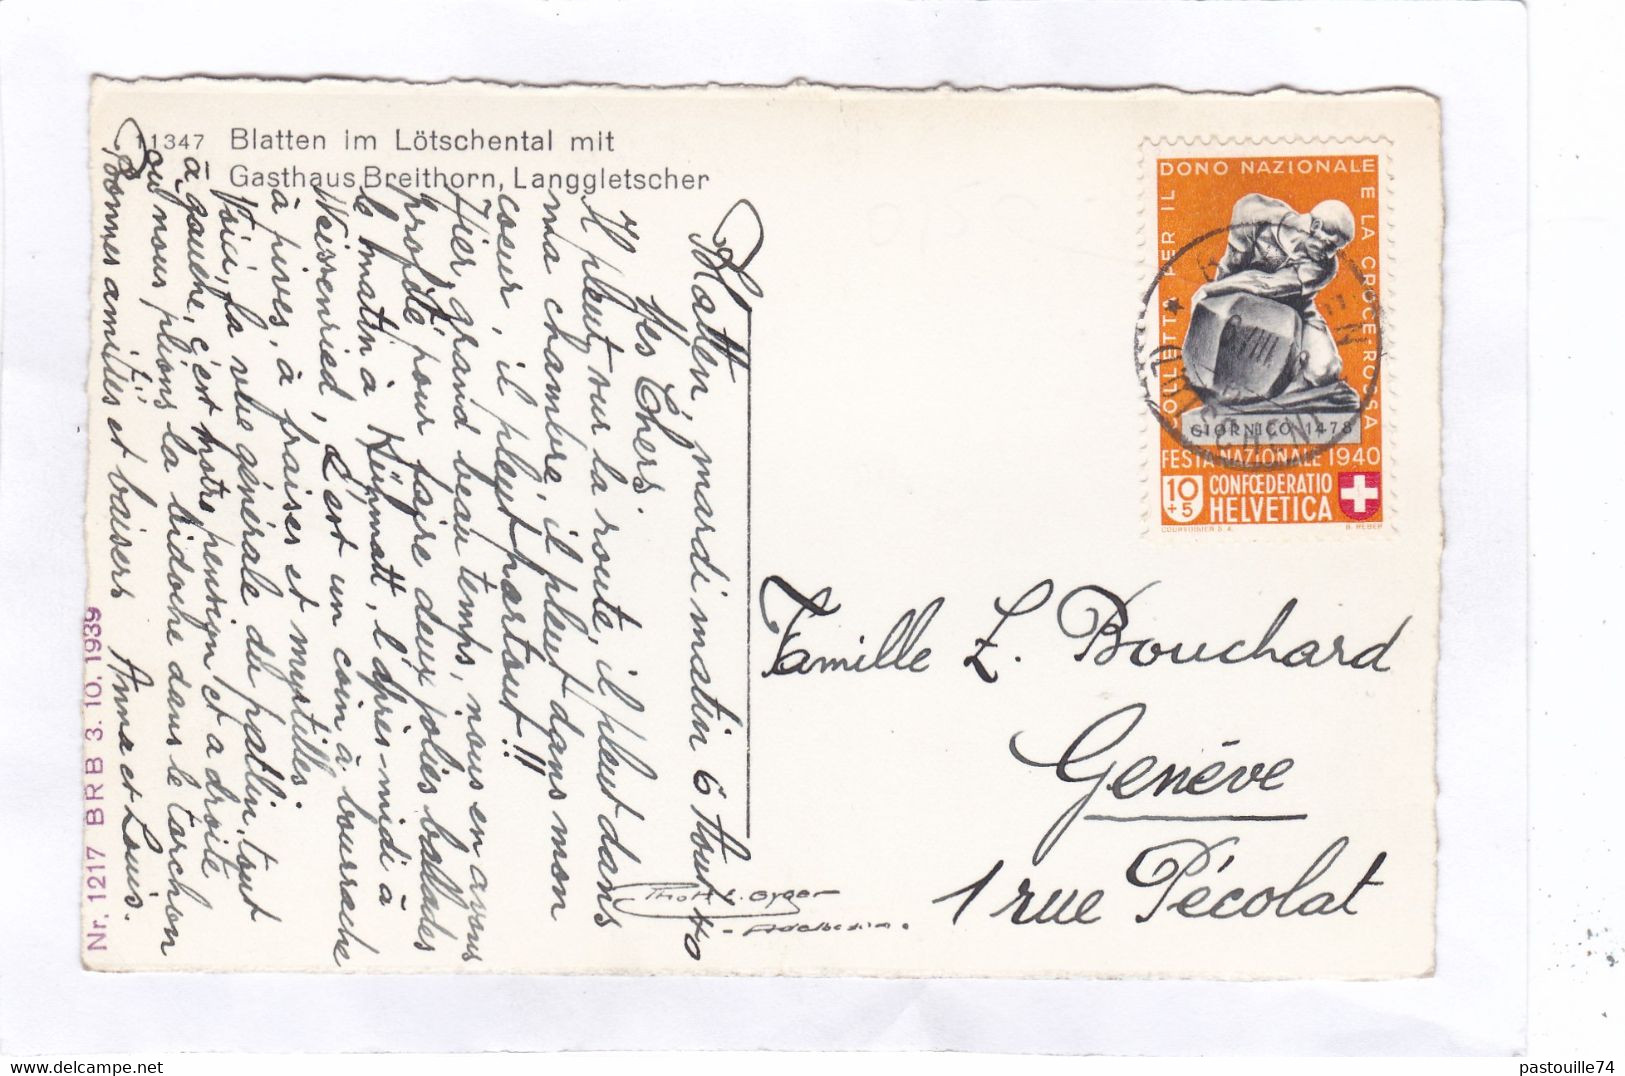 11347 Blatten im Lötschental mit
Gasthaus Breithorn, Langgletscher
Blatten, mardi matin 6 Aout 40
Mes Chers.
Il pleut sur la route, il pleut dans
ma chambre, il pleut dans mon
coeur, il pleut partout!!
Hier, grand beau temps, nous en avons
profité pour faire deux jolies ballades
le matin à Kühmatt, l'après-midi à
Weissenried, c'est un coin à bourrache
à pives, à fraises et myrtilles.
Voici, la vue générale du patlin, tout
à gauche, c'est notre pension et a droite
où nous plions la bidoche dans le torchon
Bonnes amitiés et baisers Anna et Louis.
Nr. 1217 BRB 3. 10. 1939
Phot. E. Gyger
- Adelboden.
COLLETTA PER IL DONO NAZIONALE E LA CROCE ROSSA
GIORNICO 1478
FESTA NAZIONALE 1940
10
+5
CONFŒDERATIO
HELVETICA
COURVOISIER S.A.
(LÖTSCHENTAL)
Famille E. Bouchard
Genève
1 rue Pécolat
pastouille74